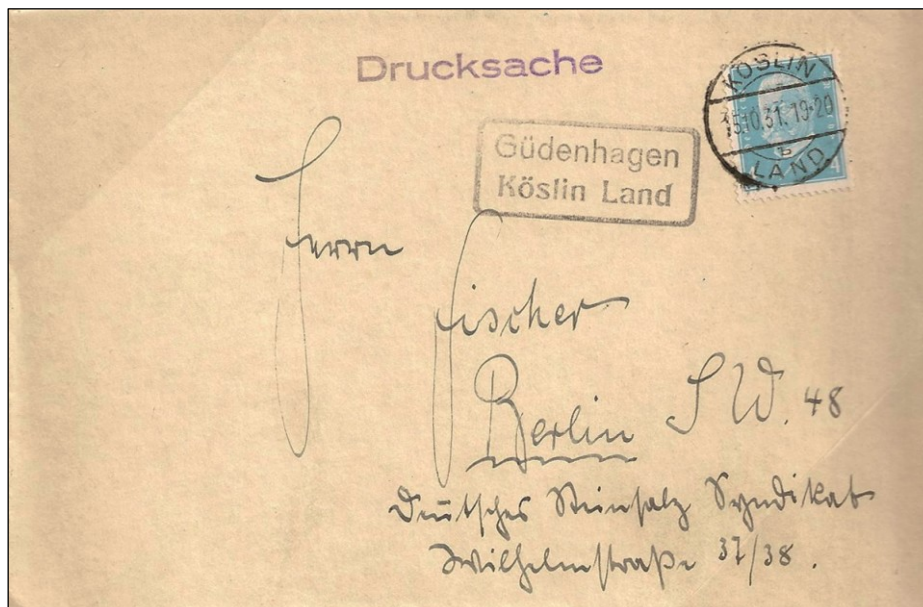 Drucksache
KÖSLIN
15.10.31.19-20
b
LAND
4
Güdenhagen
Köslin Land
Herrn
Fischer
Berlin SW. 48
Deutsches Steinsalz Syndikat
Wilhelmstraße 37/38.